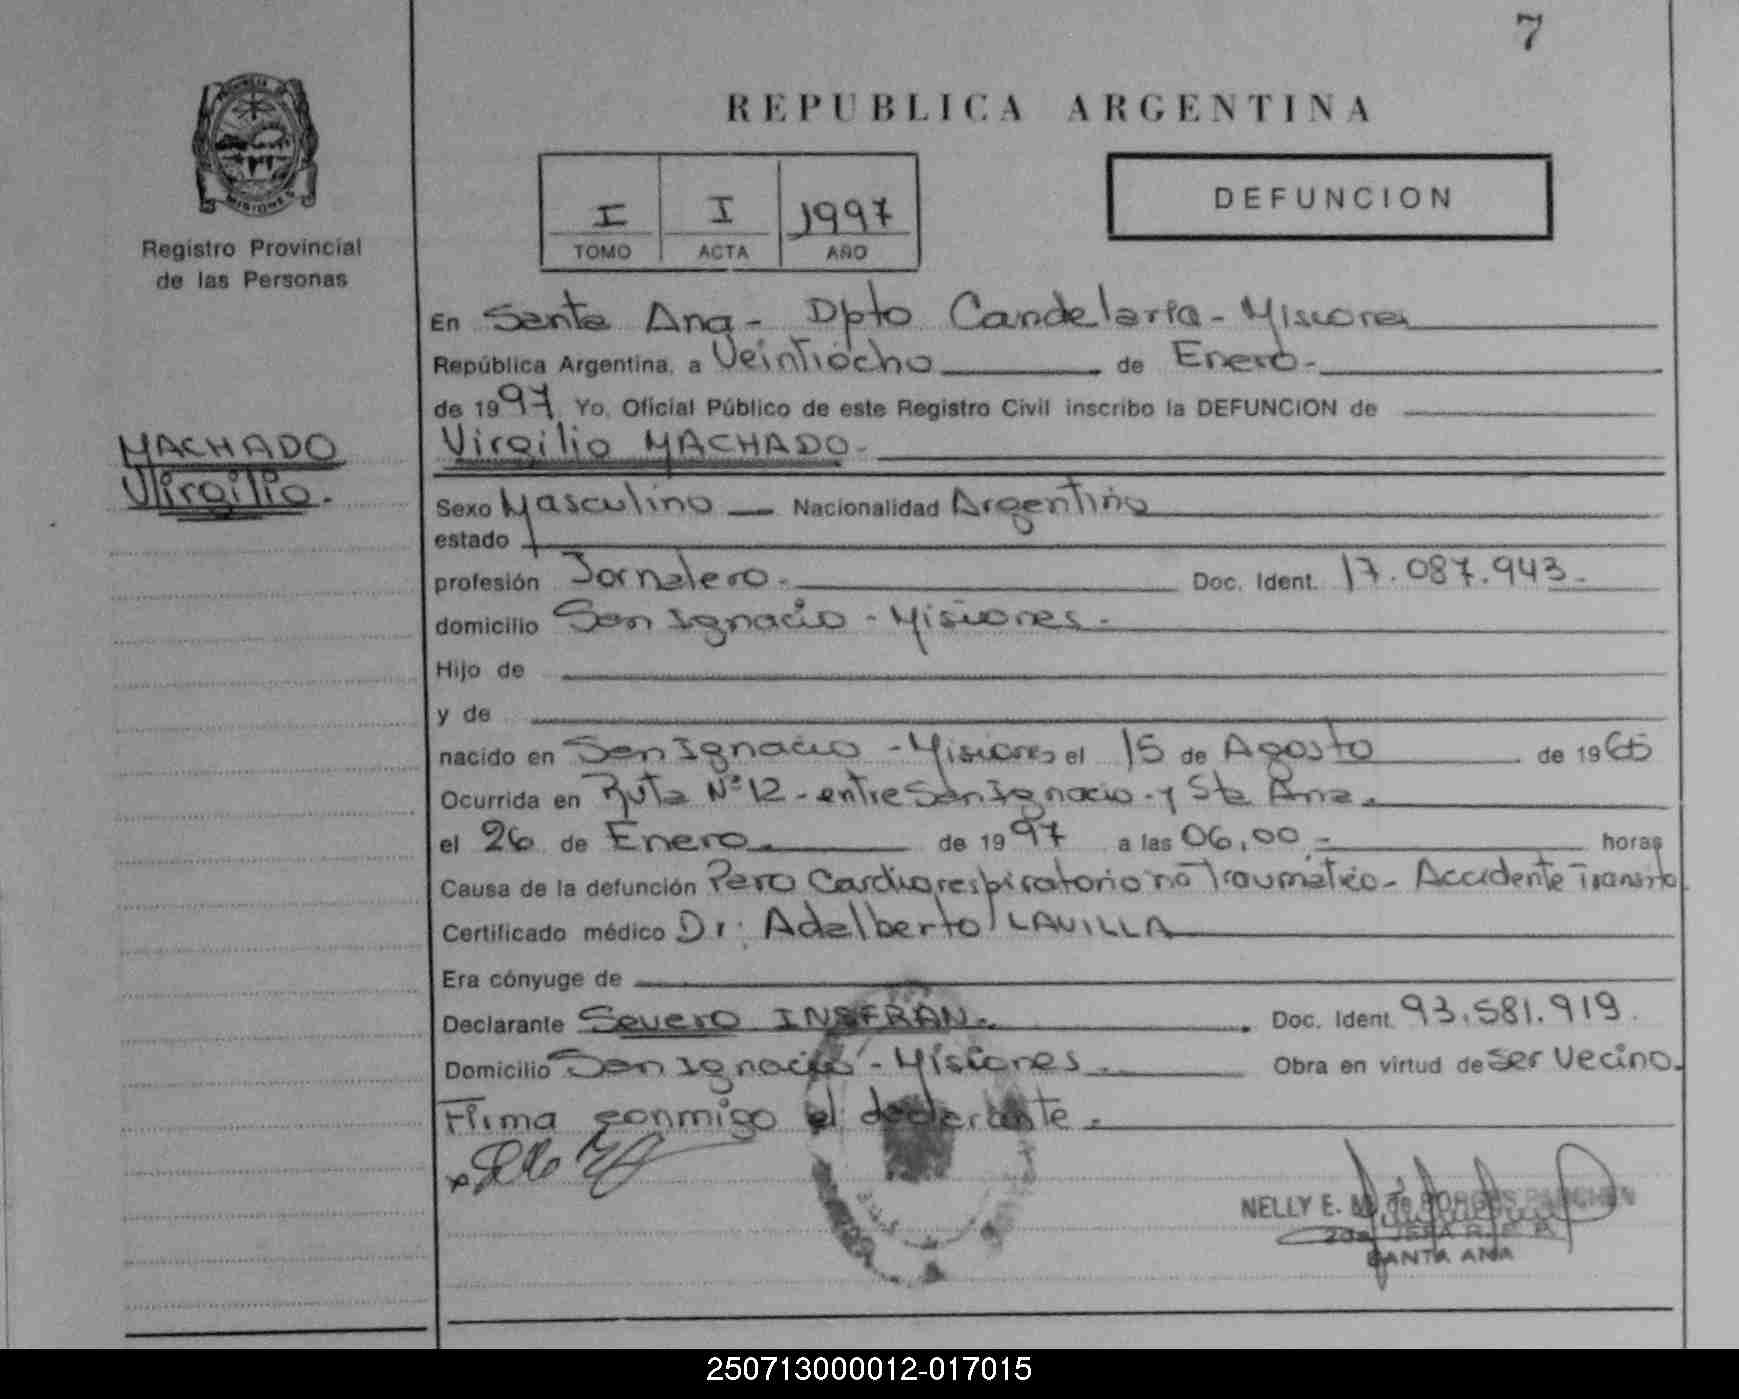 7
REPUBLICA ARGENTINA
MISIONES
Registro Provincial
de las Personas
I I 1997
TOMO ACTA AÑO
DEFUNCION
En Santa Ana - Dpto Candelaria - Misiones
República Argentina, a Veintiocho de Enero.-
de 1997. Yo, Oficial Público de este Registro Civil inscribo la DEFUNCION de
Virgilio MACHADO.
MACHADO
Virgilio.
Sexo Masculino Nacionalidad Argentina
estado
profesión Jornalero.- Doc. Ident. 17.087.943.-
domicilio San Ignacio - Misiones.-
Hijo de
y de
nacido en San Ignacio - Misiones el 15 de Agosto de 1965
Ocurrida en Ruta Nº 12 - entre San Ignacio - y Sta Ana.
el 26 de Enero. de 1997 a las 06,00.- horas
Causa de la defunción Paro Cardiorespiratorio no Traumático - Accidente Transito.
Certificado médico Dr. Adalberto LAVILLA
Era cónyuge de
Declarante Severo INSFRAN. Doc. Ident. 93.581.919.
Domicilio San Ignacio - Misiones. Obra en virtud de Ser Vecino.
Firma conmigo el declarante.
NELLY E. M. de
SANTA ANA
250713000012-017015